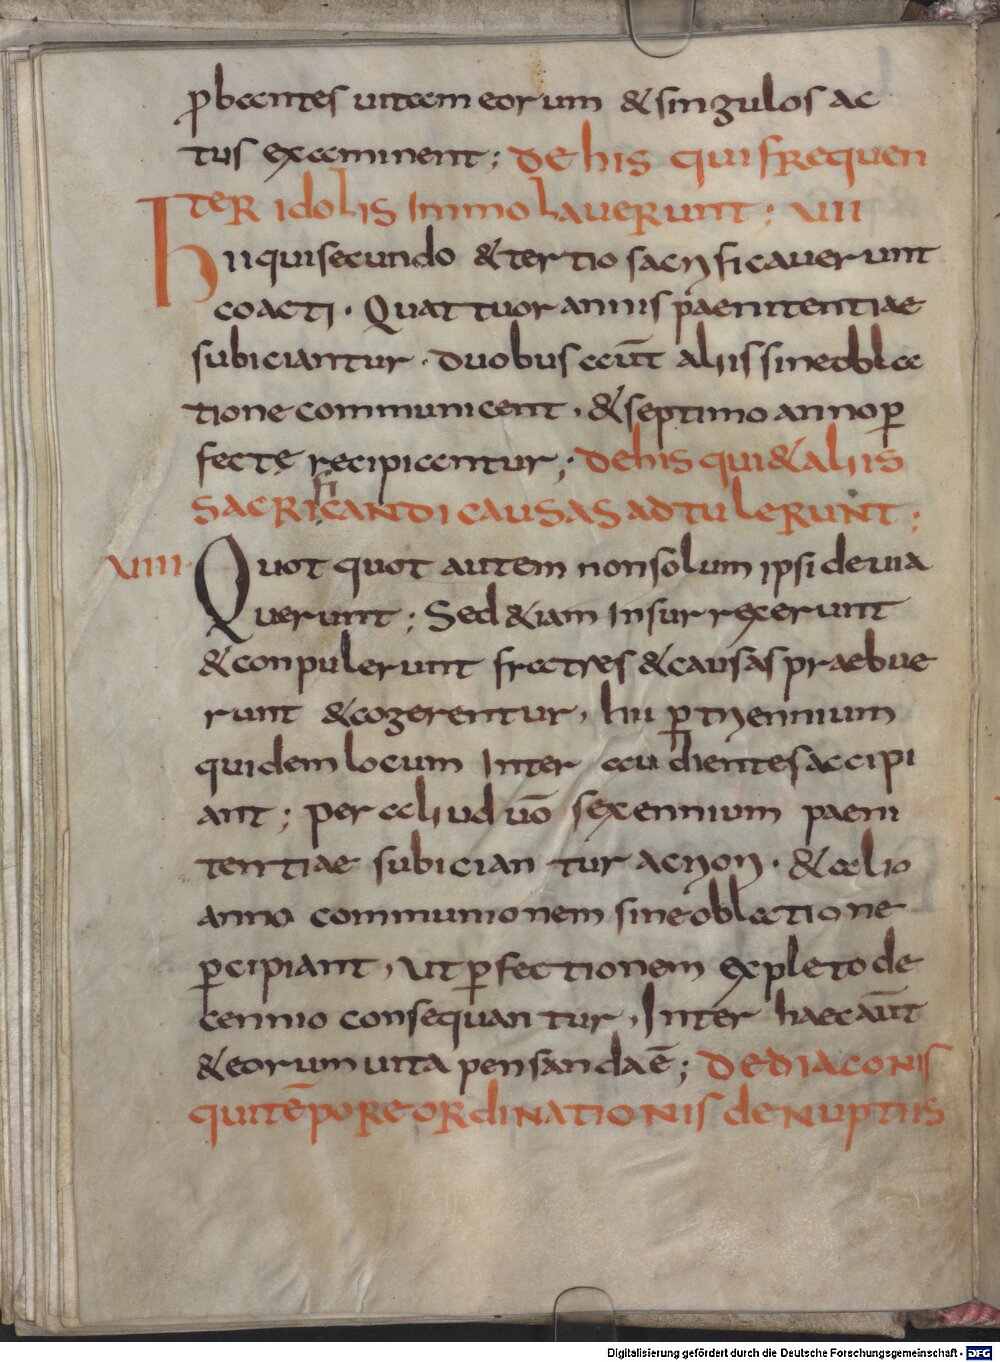 ꝓbantes uitam eorum & singulos ac
tus examinent; De his qui frequen
ter idolis immolauerunt; VIII
Hii qui secundo & tertio sacrificauerunt
coacti. Quattuor annis paenitentiae
subiciantur. duobus aūt aliis sine obla
tione communicent, & septimo anno ꝑ
fecte recipientur; De his qui & aliis
sacrificandi causas adtulerunt;
VIIII. Quot quot autem non solum ipsi deuia
uerunt; Sed & iam insurrexerunt
& conpulerunt fratres & causas praebue
runt & cogerentur, hii ꝑ triennium
quidem locum inter audientes accipi
ant; per aliud uō sexennium paeni
tentiae subiciantur acriori. & alio
anno communionem sine oblatione
ꝑcipiant, ut ꝑfectionem expleto de
cennio consequantur, Inter haec aūt
& eorum uita pensanda ē; De diaconis
qui tēpore ordinationis de nuptiis
Digitalisierung gefördert durch die Deutsche Forschungsgemeinschaft - DFG